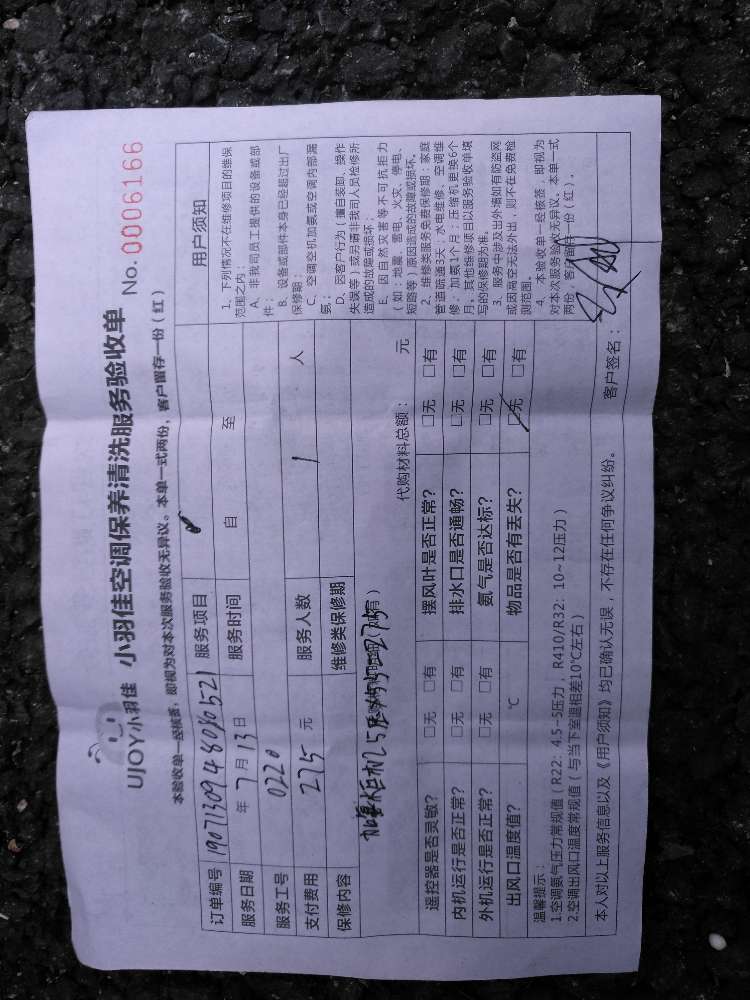 UJOY小羽佳 小羽佳空调保养清洗服务验收单 No. 0006166
本验收单一经核签，即视为对本次服务验收无异议。本单一式两份，客户留存一份（红）
订单编号 1907130948080521 服务项目
服务日期 年 7 月 13 日 服务时间 自 至
服务工号 0220
支付费用 275 元 服务人数 1 人
保修内容 维修类保修期
代购材料总额： 元
遥控器是否灵敏？ □无 □有 摆风叶是否正常？ □无 □有
内机运行是否正常？ □无 □有 排水口是否通畅？ □无 □有
外机运行是否正常？ □无 □有 氨气是否达标？ □无 □有
出风口温度值？ ℃ 物品是否有丢失？ □无 □有
用户须知
1、下列情况不在维修项目的维保
范围之内：
A、非我司员工提供的设备或部
件；
B、设备或部件本身已经超过出厂
保修期；
C、空调空机加氨或空调内部漏
氨；
D、因客户行为（擅自装卸、操作
失误等）或另请非我司人员检修所
造成的故障或损坏；
E、因自然灾害等不可抗拒力
（如：地震、雷电、火灾、停电、
短路等）原因造成的故障或损坏。
2、维修类服务免费保修期：家庭
管道疏通3天；水电维修、空调维
修、加氨1个月；压缩机更换6个
月，其他维修项目以服务验收单填
写的保修期为准。
3、服务中涉及出外墙如有防盗网
或因高空无法外出，则不在免费检
测范围。
4、本验收单一经核签，即视为
对本次服务验收无异议。本单一式
两份，客户留存一份（红）。
温馨提示：
1.空调氨气压力常规值（R22：4.5~5压力，R410/R32：10~12压力）
2.空调出风口温度常规值（与当下室温相差10℃左右）
本人对以上服务信息以及《用户须知》均已确认无误，不存在任何争议纠纷。 客户签名：